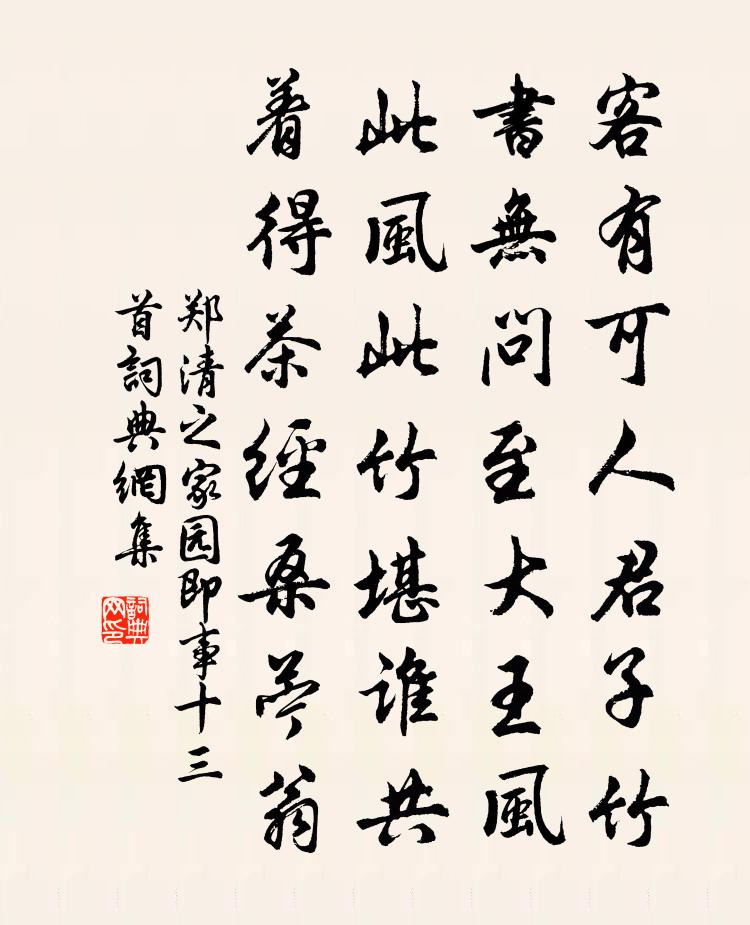 客有可人君子竹
書無問至大王風
此風此竹堪誰共
着得茶經桑苎翁
郑清之家园即事十三
首詞典網集
詞典网印